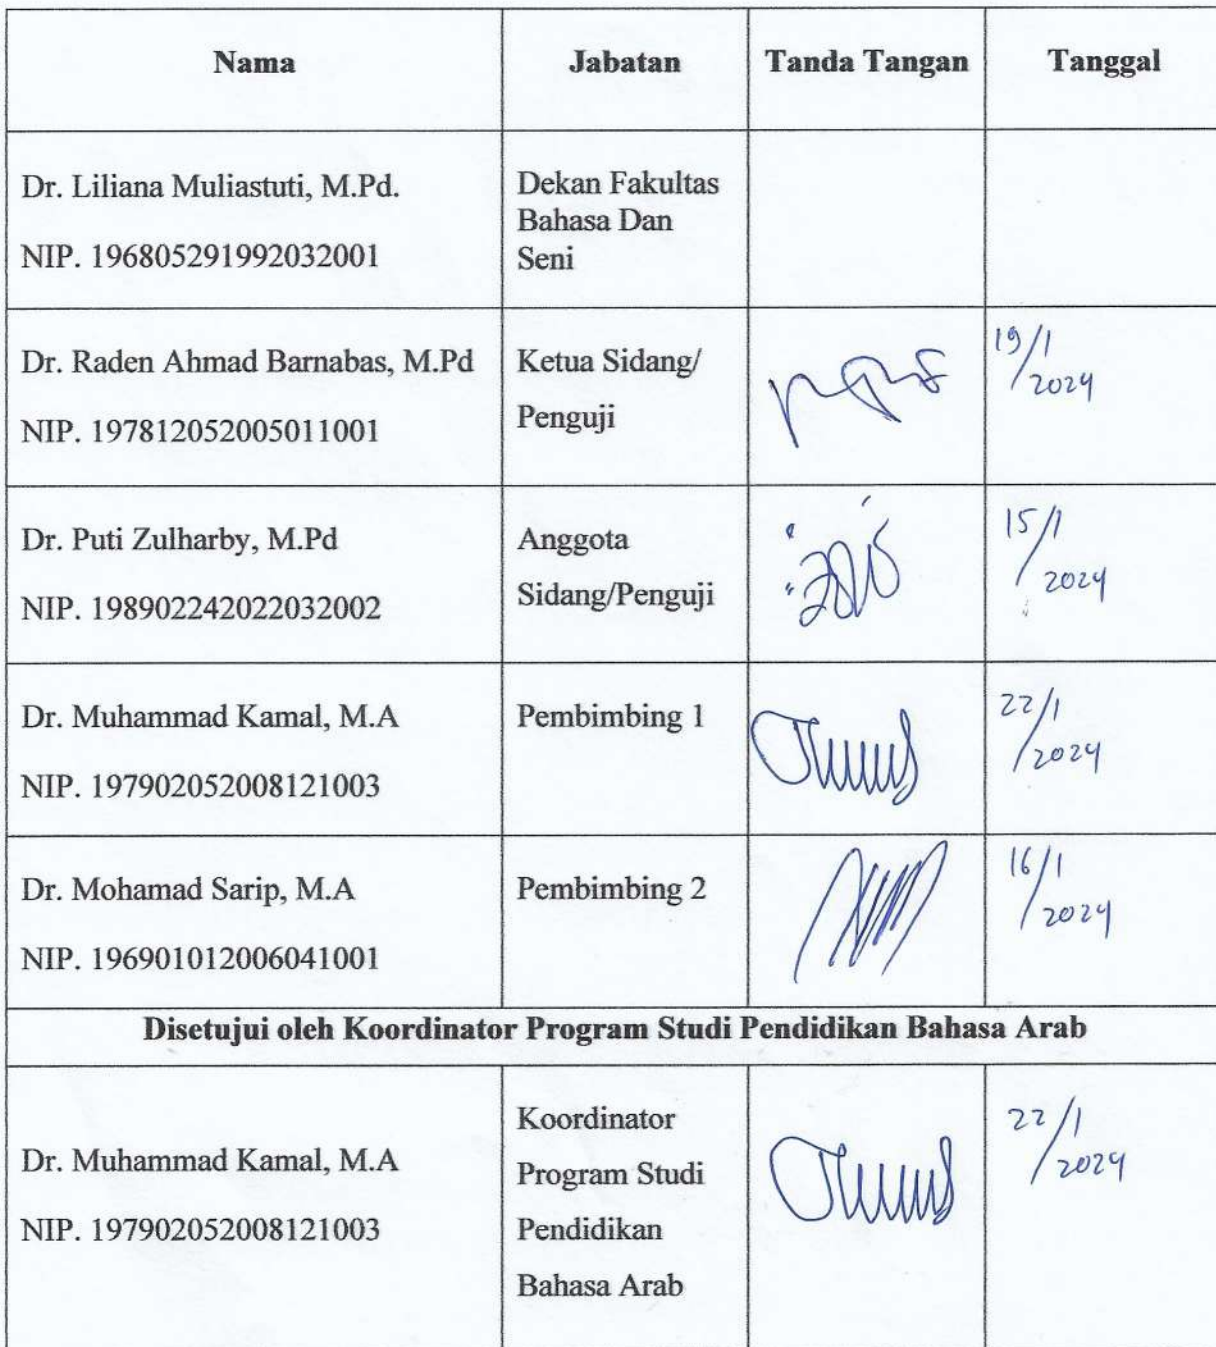 Nama Jabatan Tanda Tangan Tanggal
Dr. Liliana Muliastuti, M.Pd.
NIP. 196805291992032001
Dekan Fakultas
Bahasa Dan
Seni
Dr. Raden Ahmad Barnabas, M.Pd
NIP. 197812052005011001
Ketua Sidang/
Penguji
19/1
2024
Dr. Puti Zulharby, M.Pd
NIP. 198902242022032002
Anggota
Sidang/Penguji
15/1
2024
Dr. Muhammad Kamal, M.A
NIP. 197902052008121003
Pembimbing 1
22/1
2024
Dr. Mohamad Sarip, M.A
NIP. 196901012006041001
Pembimbing 2
16/1
2024
Disetujui oleh Koordinator Program Studi Pendidikan Bahasa Arab
Dr. Muhammad Kamal, M.A
NIP. 197902052008121003
Koordinator
Program Studi
Pendidikan
Bahasa Arab
22/1
2024